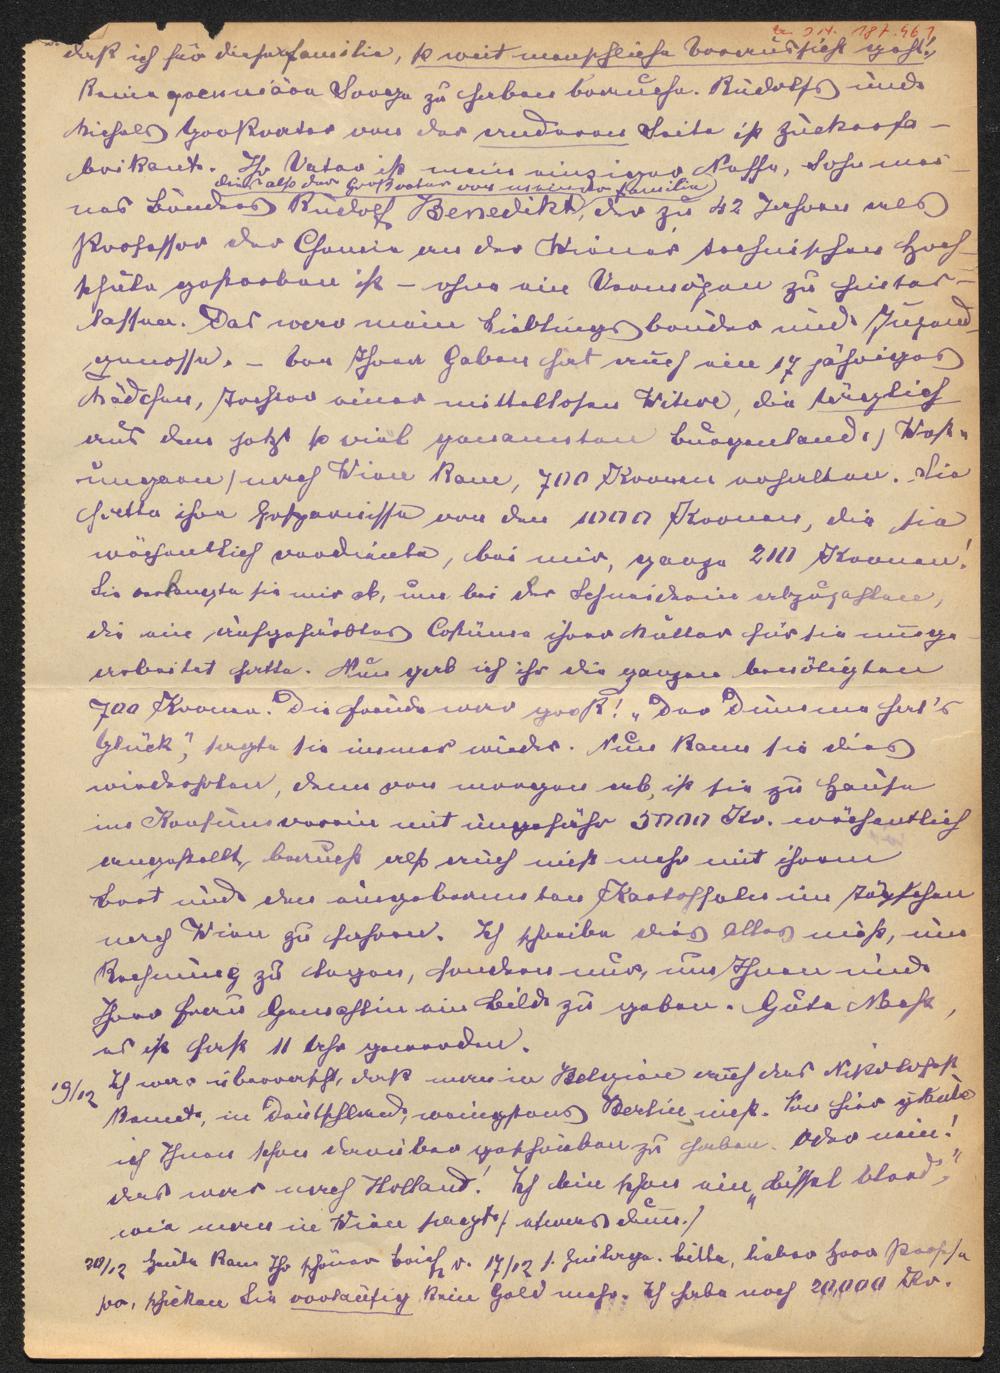 I.N. 187.961
daß ich für diese Familie, so weit menschliche Voraussicht geht!,
keine pekuniäre Sorge zu haben brauche. Rudolfs und
Michels Großvater von der anderen Seite ist Zuckerfa-
brikant. Ihr Vater ist mein einziger Neffe, Sohn mei-
(dies also der Großvater von meiner Familie)
nes Bruders Rudolf Benedikt, der zu 42 Jahren als
Professor der Chemie an der Wiener technischen Hoch-
schule gestorben ist – ohne ein Vermögen zu hinter-
lassen. Das war mein Lieblingsbruder und Jugend-
genosse. – Von Ihren Gaben hat auch ein 17 jähriges
Mädchen, Tochter einer mittellosen Witwe, die täglich
aus dem jetzt so viel genannten Burgenland (West-
ungarn) nach Wien kam, 700 Kronen erhalten. Sie
hatte ihre Ersparnisse von den 1000 Kronen, die sie
wöchentlich verdiente, bei mir, ganze 200 Kronen!
Sie verlangte sie mir ab, um bei der Schneiderin abzuzahlen,
die ein aufgefärbtes Costüme ihrer Mutter für sie umge-
arbeitet hatte. Nun gab ich ihr die ganzen benötigten
700 Kronen. Die Freude war groß! „Der Dumme hat's
Glück", sagte sie immer wieder. Nun kann sie dies
wiederholen, denn von morgen ab, ist sie zu Hause
im Konsumverein mit ungefähr 3000 Kr. wöchentlich
angestellt, braucht also auch nicht mehr mit ihrem
Brot und den eingebrannten Kartoffeln im Täschchen
nach Wien zu fahren. Ich schreibe dies Alles nicht, um
Rechnung zu legen, sondern nur, um Ihnen und
Ihrer Frau Gemahlin ein Bild zu geben. Gute Nacht,
es ist fast 11 Uhr geworden.
19/12 Ich war überrascht, daß man in Belgien auch das Nikolofest
kennt, in Deutschland, wenigstens Berlin nicht. Von hier glaube
ich Ihnen schon darüber geschrieben zu haben. Oder nein!
das war nach Holland! Ich bin schon ein „bissel blöd",
wie man in Wien sagt (etwas dum.)
20/12 Heute kam Ihr schöner Brief v. 17/12 s. Beilage. Bitte, lieber Herr Profes-
sor, schicken Sie vorläufig kein Geld mehr. Ich habe noch 20,000 Kr.